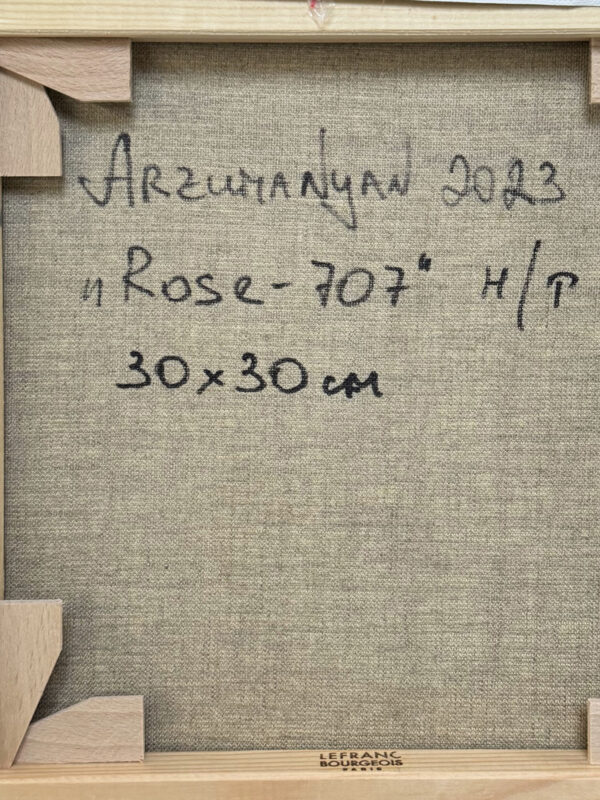 ARZUMANYAN 2023
„Rose-707“ н/т
30x30 см
LEFRANC
BOURGEOIS
PARIS